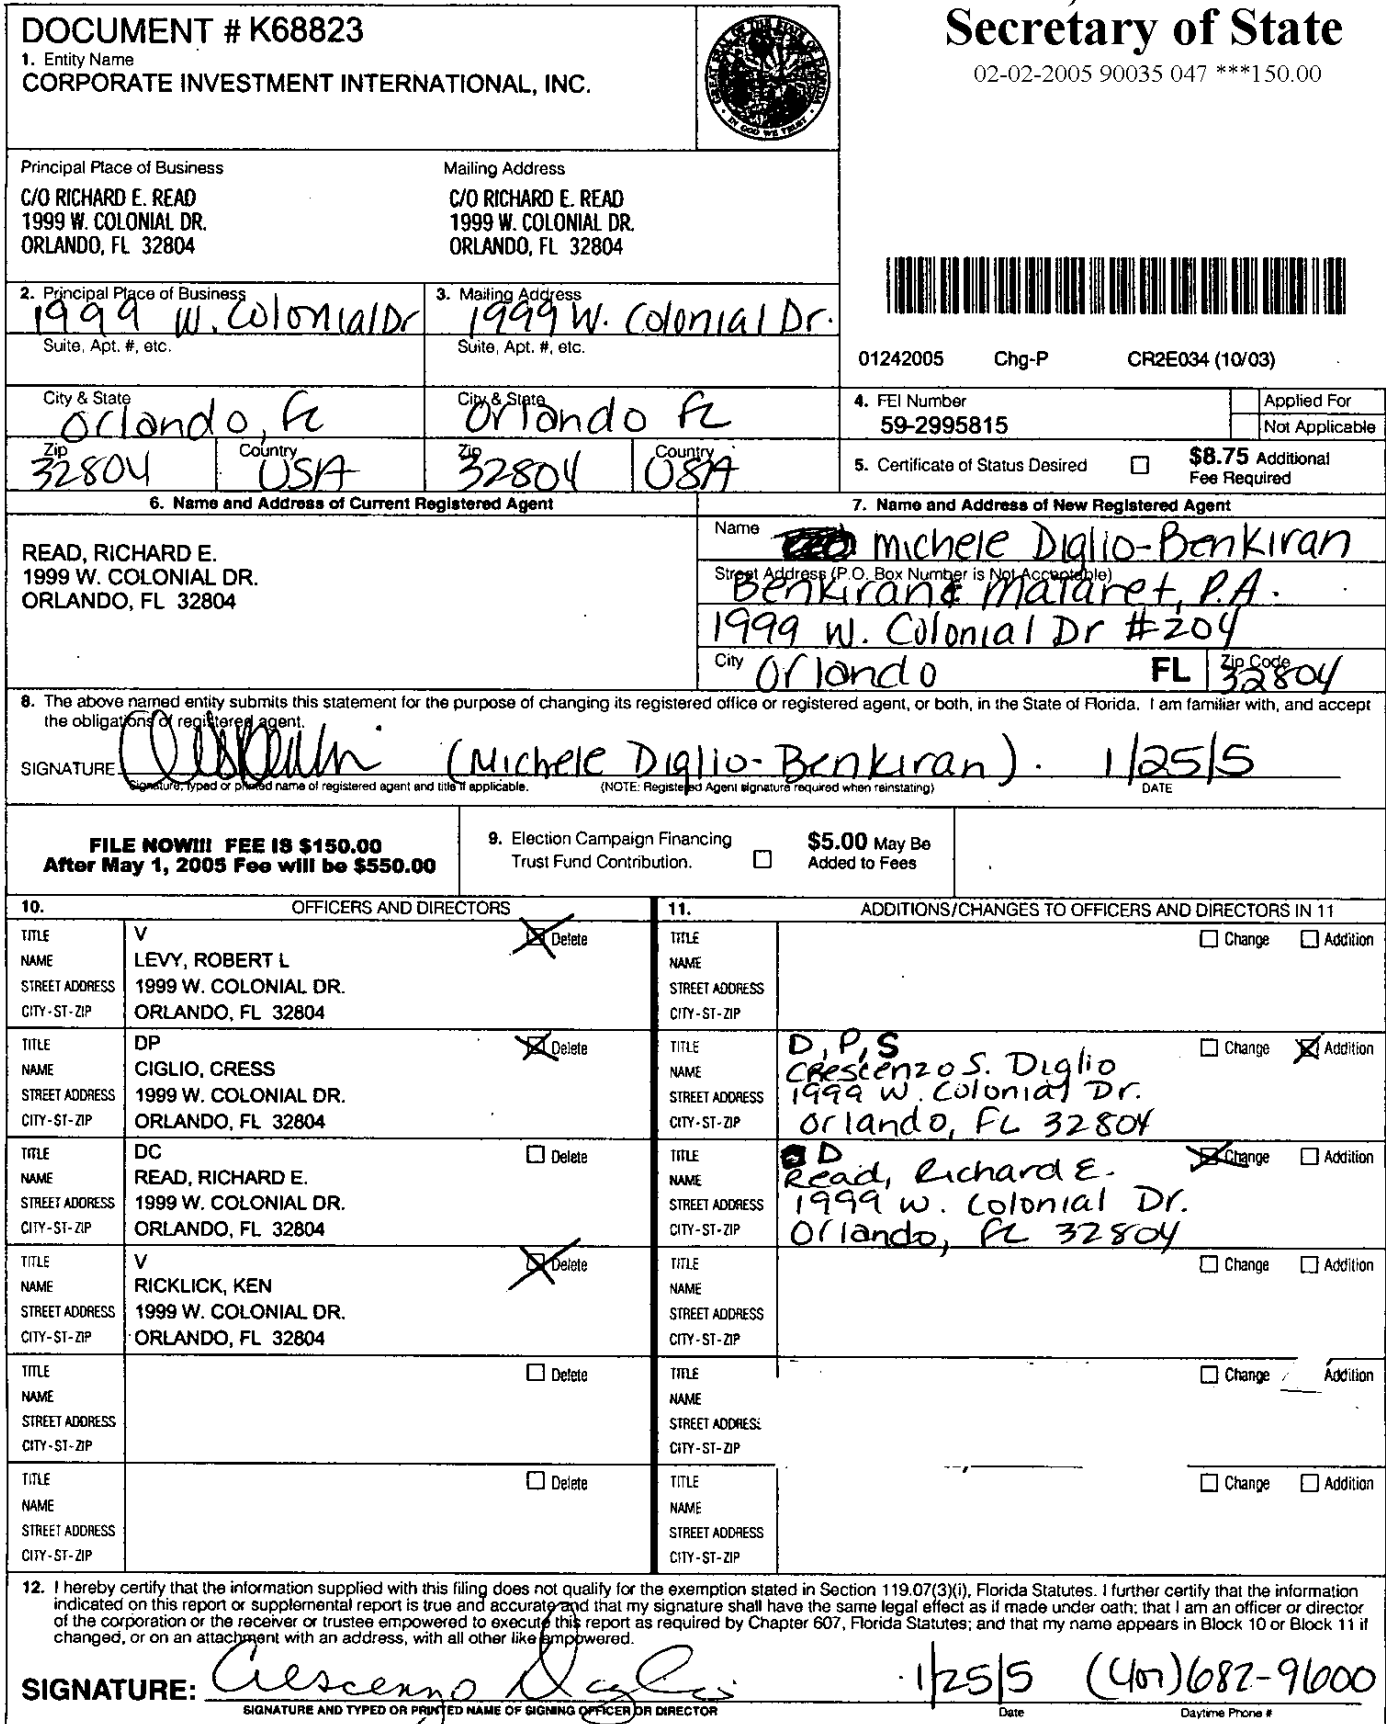 Secretary of State
02-02-2005 90035 047 ***150.00
DOCUMENT # K68823
1. Entity Name
CORPORATE INVESTMENT INTERNATIONAL, INC.
GREAT SEAL OF THE STATE OF FLORIDA
IN GOD WE TRUST
Principal Place of Business
C/O RICHARD E. READ
1999 W. COLONIAL DR.
ORLANDO, FL 32804
Mailing Address
C/O RICHARD E. READ
1999 W. COLONIAL DR.
ORLANDO, FL 32804
2. Principal Place of Business
1999 W. Colonial Dr
Suite, Apt. #, etc.
City & State
Orlando, FL
Zip
32804
Country
USA
3. Mailing Address
1999 W. Colonial Dr.
Suite, Apt. #, etc.
City & State
Orlando FL
Zip
32804
Country
USA
01242005 Chg-P CR2E034 (10/03)
4. FEI Number
59-2995815
Applied For
Not Applicable
5. Certificate of Status Desired
$8.75 Additional
Fee Required
6. Name and Address of Current Registered Agent
READ, RICHARD E.
1999 W. COLONIAL DR.
ORLANDO, FL 32804
7. Name and Address of New Registered Agent
Name
Michele Diglio-Benkiran
Street Address (P.O. Box Number is Not Acceptable)
Benkiran & Mataret, P.A.
1999 W. Colonial Dr #204
City Orlando FL Zip Code 32804
8. The above named entity submits this statement for the purpose of changing its registered office or registered agent, or both, in the State of Florida. I am familiar with, and accept
the obligations of registered agent.
SIGNATURE (Michele Diglio-Benkiran). 1/25/5
Signature, typed or printed name of registered agent and title if applicable. (NOTE: Registered Agent signature required when reinstating) DATE
FILE NOW!!! FEE IS $150.00
After May 1, 2005 Fee will be $550.00
9. Election Campaign Financing
Trust Fund Contribution.
$5.00 May Be
Added to Fees
10. OFFICERS AND DIRECTORS
TITLE V Delete
NAME LEVY, ROBERT L
STREET ADDRESS 1999 W. COLONIAL DR.
CITY-ST-ZIP ORLANDO, FL 32804
TITLE DP Delete
NAME CIGLIO, CRESS
STREET ADDRESS 1999 W. COLONIAL DR.
CITY-ST-ZIP ORLANDO, FL 32804
TITLE DC Delete
NAME READ, RICHARD E.
STREET ADDRESS 1999 W. COLONIAL DR.
CITY-ST-ZIP ORLANDO, FL 32804
TITLE V Delete
NAME RICKLICK, KEN
STREET ADDRESS 1999 W. COLONIAL DR.
CITY-ST-ZIP ORLANDO, FL 32804
TITLE Delete
NAME
STREET ADDRESS
CITY-ST-ZIP
TITLE Delete
NAME
STREET ADDRESS
CITY-ST-ZIP
11. ADDITIONS/CHANGES TO OFFICERS AND DIRECTORS IN 11
TITLE Change Addition
NAME
STREET ADDRESS
CITY-ST-ZIP
TITLE D, P, S Change Addition
NAME Crescenzo S. Diglio
STREET ADDRESS 1999 W. Colonial Dr.
CITY-ST-ZIP Orlando, FL 32804
TITLE D Change Addition
NAME Read, Richard E.
STREET ADDRESS 1999 W. Colonial Dr.
CITY-ST-ZIP Orlando, FL 32804
TITLE Change Addition
NAME
STREET ADDRESS
CITY-ST-ZIP
TITLE Change Addition
NAME
STREET ADDRESS
CITY-ST-ZIP
TITLE Change Addition
NAME
STREET ADDRESS
CITY-ST-ZIP
12. I hereby certify that the information supplied with this filing does not qualify for the exemption stated in Section 119.07(3)(i), Florida Statutes. I further certify that the information
indicated on this report or supplemental report is true and accurate and that my signature shall have the same legal effect as if made under oath; that I am an officer or director
of the corporation or the receiver or trustee empowered to execute this report as required by Chapter 607, Florida Statutes; and that my name appears in Block 10 or Block 11 if
changed, or on an attachment with an address, with all other like empowered.
SIGNATURE: Crescenzo Diglio 1/25/5 (407)682-9600
SIGNATURE AND TYPED OR PRINTED NAME OF SIGNING OFFICER OR DIRECTOR Date Daytime Phone #